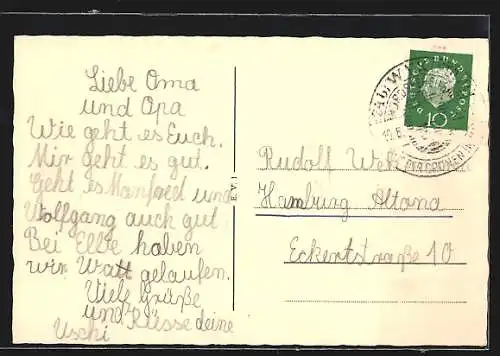 Liebe Oma
und Opa
Wie geht es Euch.
Mir geht es gut.
Geht es Manfred und
Wolfgang auch gut
Bei Elbe haben
wir Watt gelaufen.
Viele grüße
und Küsse deine
Uschi
E.V.
DEUTSCHE BUNDESPOST
10
Rudolf
Hamburg Altona
Eckertstraße 10